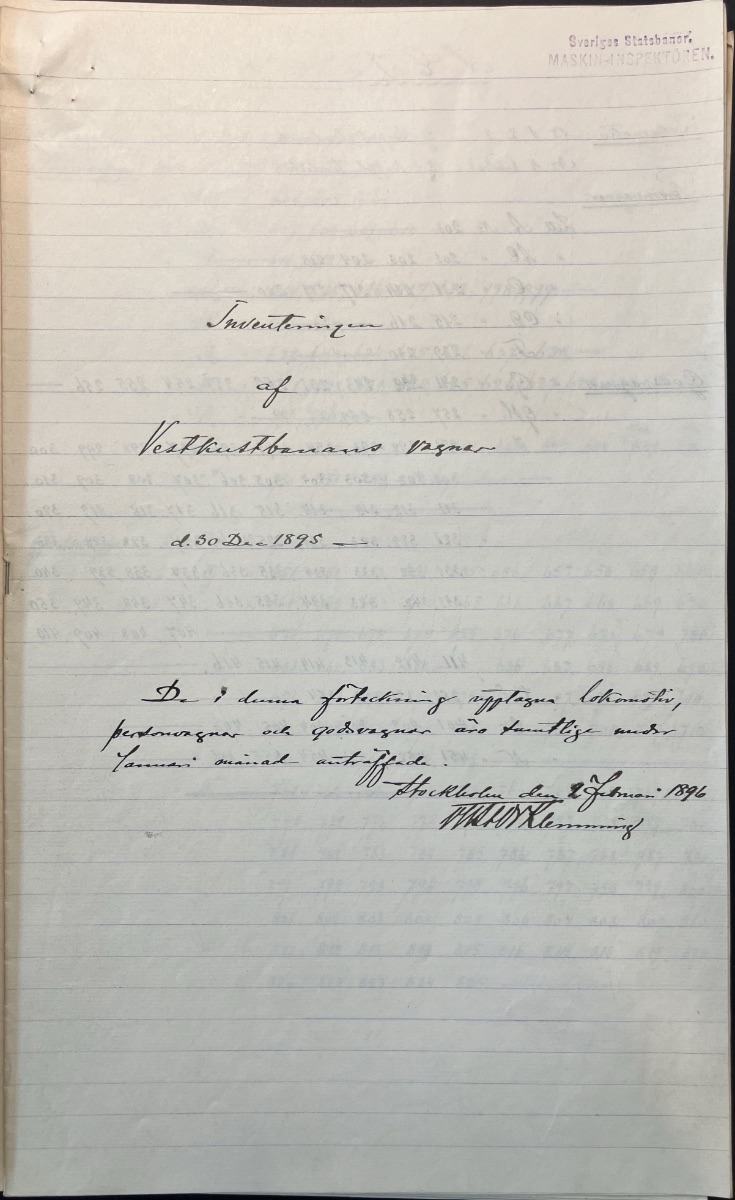 Sveriges Statsbanor.
MASKIN-INSPEKTÖREN.
Inventeringen
af
Vestkustbanans vagnar
d. 30 Dec 1895 —
De i denna förteckning upptagna lokomotiv,
personvagnar och godsvagnar äro samtlige under
Januari månad anträffade.
Stockholm den 2 Februari 1896
Klemming